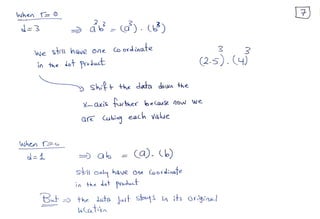 7
When r=0
d=3 ⇒ a³b³ = (a³) . (b³)
We still have one coordinate
in the dot product
(2.5)³ . (4)³
→ Shift the data down the
x-axis further because now we
are cubing each value
When r=0
d=1 ⇒ ab = (a). (b)
still only have one coordinate
in the dot product
But ⇒ the data just stays in its original
location